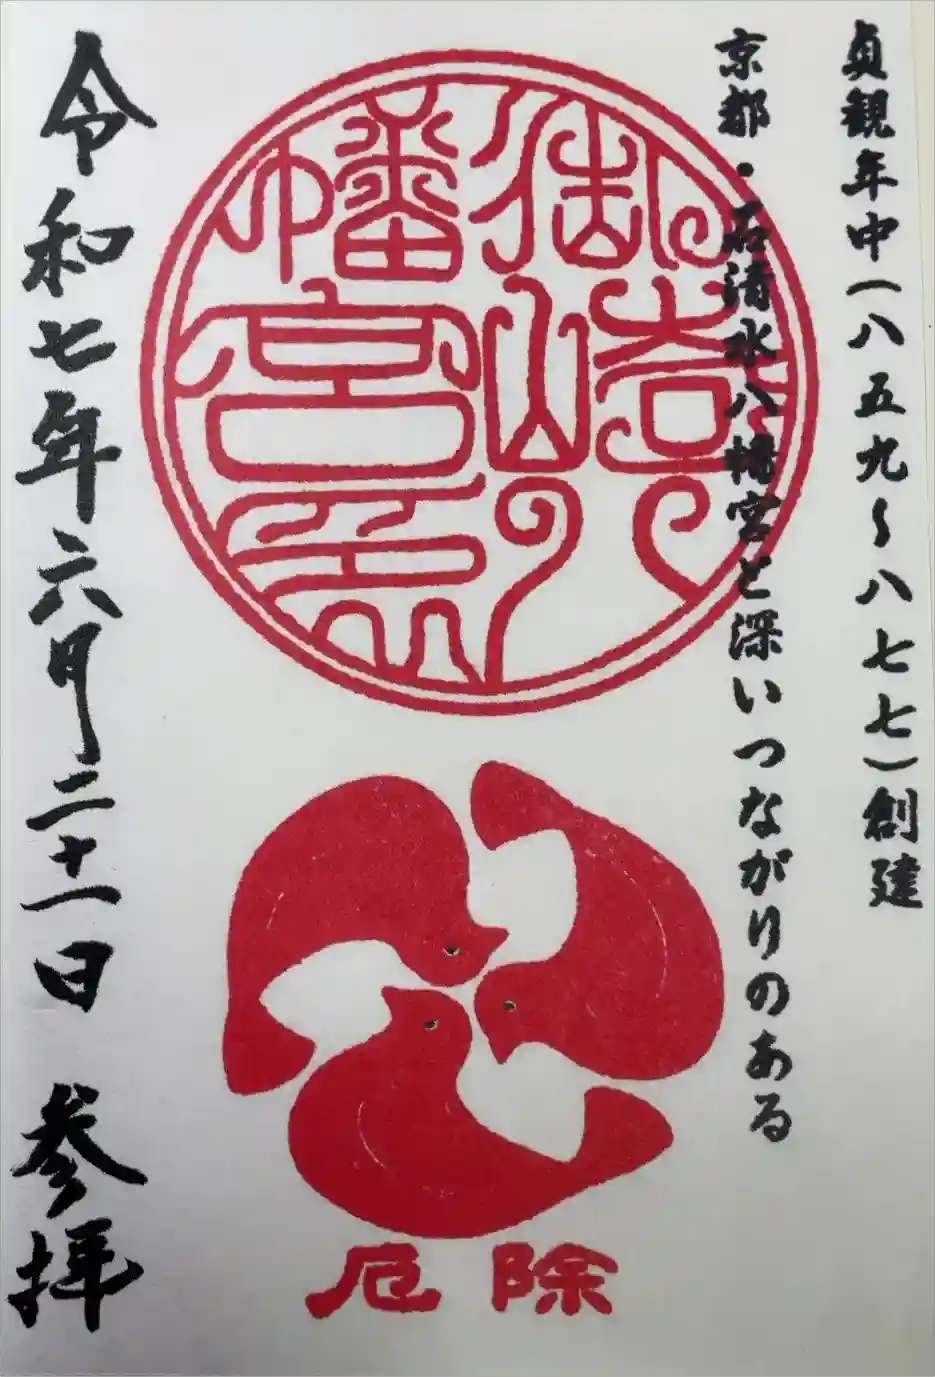 貞観年中(八五九~八七七)創建
京都・石清水八幡宮と深いつながりのある
御崎八
幡宮印
厄除
令和七年六月二十一日 参拝